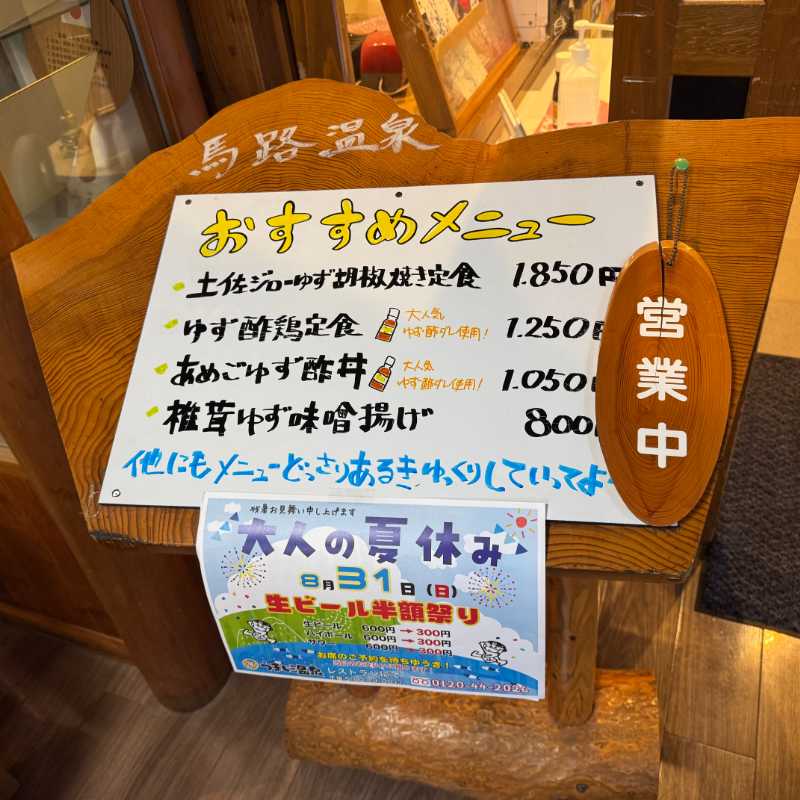 馬路温泉
おすすめメニュー
土佐ジローゆず胡椒焼き定食 1.850円
ゆず酢鶏定食 大人気 ゆず酢ダレ使用! 1.250
あめごゆず酢丼 大人気 ゆず酢ダレ使用! 1.050
椎茸ゆず味噌揚げ 800
他にもメニューどっさりあるきゆっくりしていってよ
営業中
残暑お見舞い申し上げます
大人の夏休み
8月31日(日)
生ビール半額祭り
生ビール 600円→300円
ハイボール 600円→300円
サワー 600円→300円
お席のご予約を待ちゆうき!
レストラン
0120-44-2026